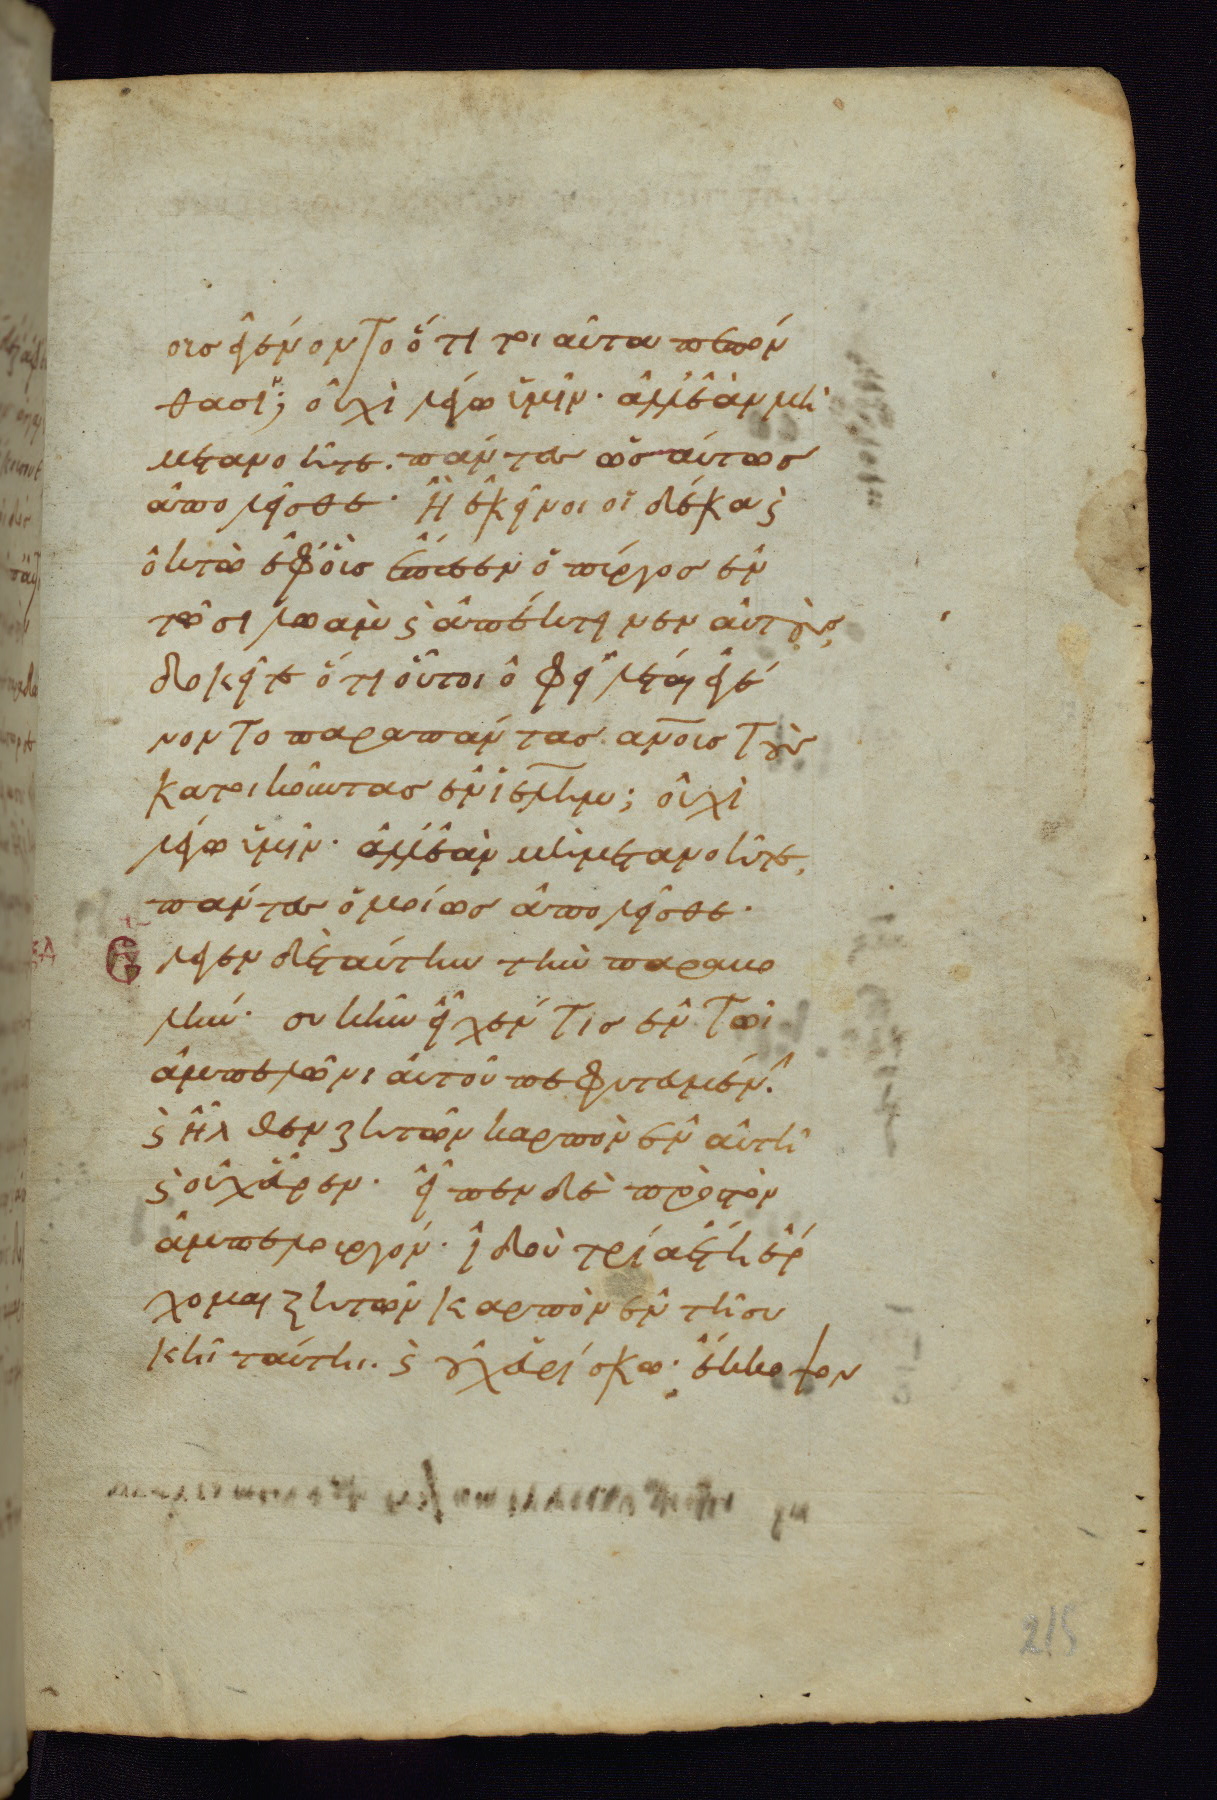 οισ ἐγένοντο ὅτι τοιαῦτα πεπόν
θασιν; οὐχὶ λέγω ὑμῖν· ἀλλ' ἐὰν μὴ
μετανοῆτε. πάντεσ ὡσαύτωσ
ἀπολεῖσθε· Ἢ ἐκεῖνοι οἱ δέκα ϗ
ὀκτὼ ἐφ' οὓσ ἔπεσεν ὁ πύργοσ ἐν
τῶ σιλωὰμ ϗ ἀπέκτεινεν αὐτοὺσ,
δοκεῖτε ὅτι οὗτοι ὀφειλέται ἐγέ
νοντο παρὰ πάντασ ἀν̅οισ τοὺσ
κατοικοῦντασ ἐν ἱε̅λημ; οὐχὶ
λέγω ὑμῖν· ἀλλ' ἐὰν μὴ μετανοῆτε,
πάντεσ ὁμοίωσ ἀπολεῖσθε·
Ἔλεγεν δὲ ταύτην τὴν παραβο
λήν· συκῆν εἶχέν τισ ἐν τῶι
ἀμπελῶνι αὐτοῦ πεφυτευμένην·
ϗ ἦλθεν ζητῶν καρπὸν ἐν αὐτῆ
ϗ οὐχ εὗρεν· εἶπεν δὲ πρὸσ τὸν
ἀμπελουργόν· ἰδοὺ τρία ἔτη ἔρ
χομαι ζητῶν καρπὸν ἐν τῆ συ
κῆ ταύτηι· ϗ οὐχ εὑρίσκω· ἔκκοψον
215